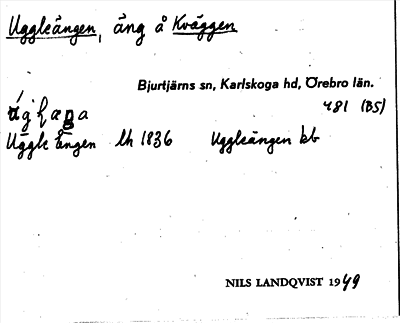 Uggleängen, äng å Kväggen
Bjurtjärns sn, Karlskoga hd, Örebro län.
481 (B5)
Uggle Ängen lh 1836 Uggleängen kb
NILS LANDQVIST 1949